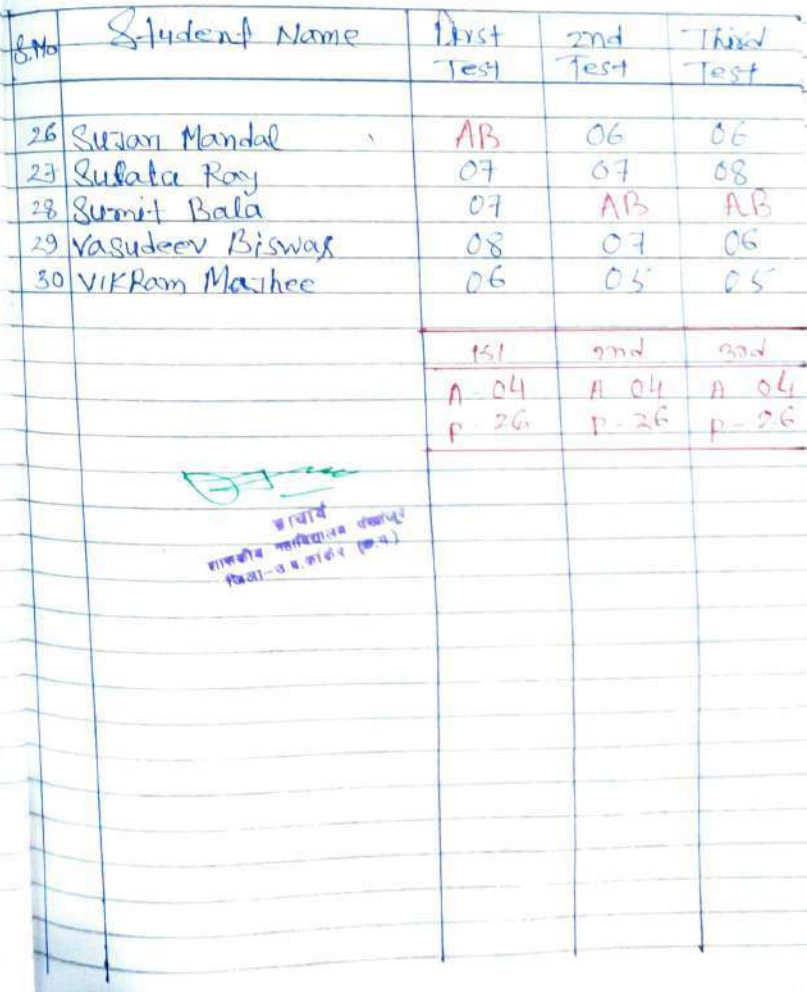 S.No Student Name First Test 2nd Test Third Test
26 Sujan Mandal AB 06 06
27 Sulata Ray 07 07 08
28 Sumit Bala 07 AB AB
29 Vasudeev Biswas 08 07 06
30 VIKRam Majhee 06 05 05
1st 2nd 3rd
A - 04 A 04 A 04
P - 26 P - 26 P - 26
प्राचार्य
शासकीय महाविद्यालय पंखांजूर
जिला-उ.ब.कांकेर (छ.ग.)